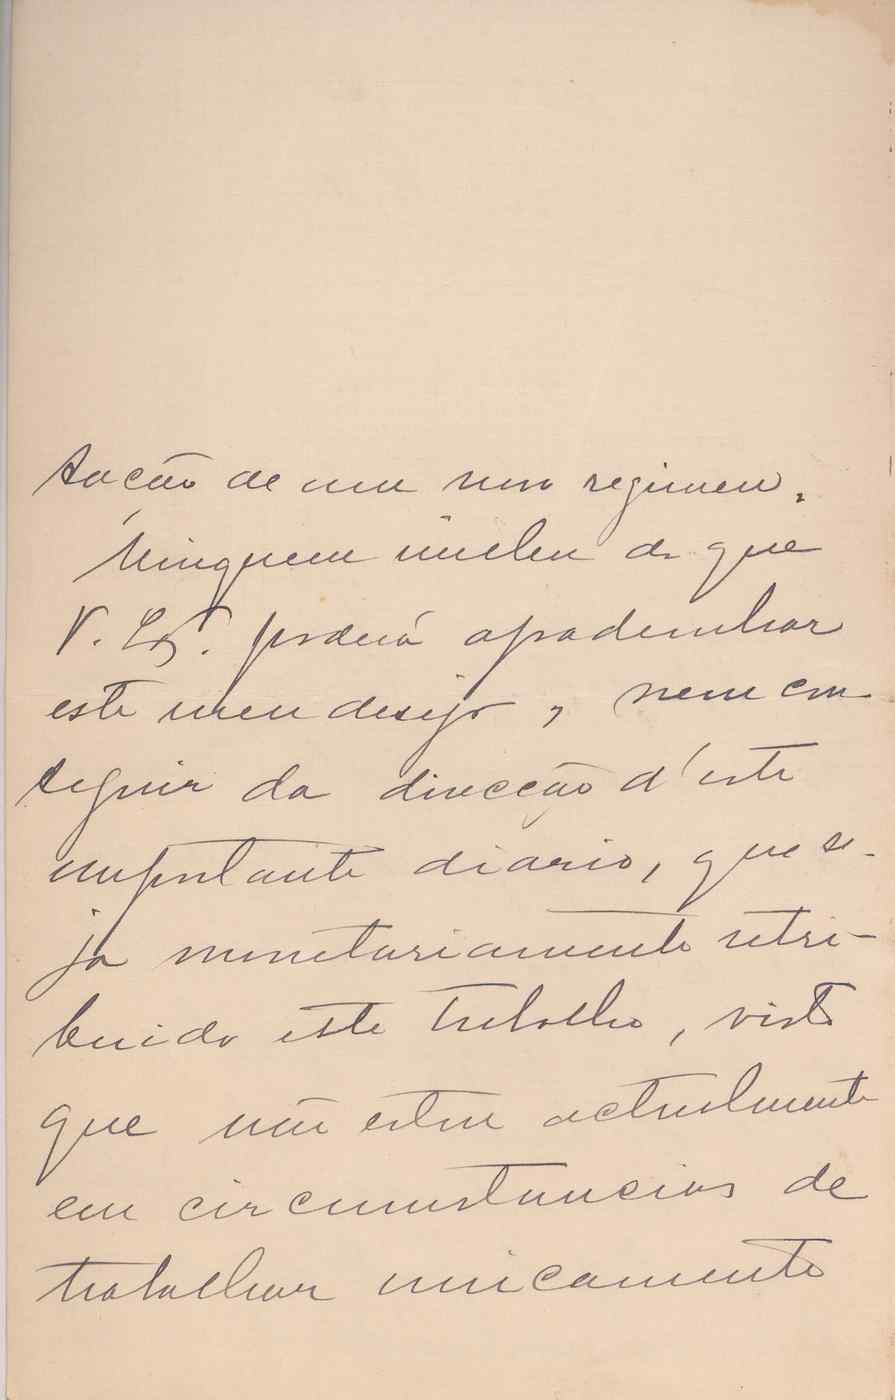 tação de um novo regimen.
Ninguem melhor do que
V. Ex.ª poderá apadrinhar
este meu desejo, nem con-
seguir da direcção d'este
importante diario, que se-
ja monetariamente retri-
buido este trabalho, visto
que não estou actualmente
em circumstancias de
trabalhar unicamente